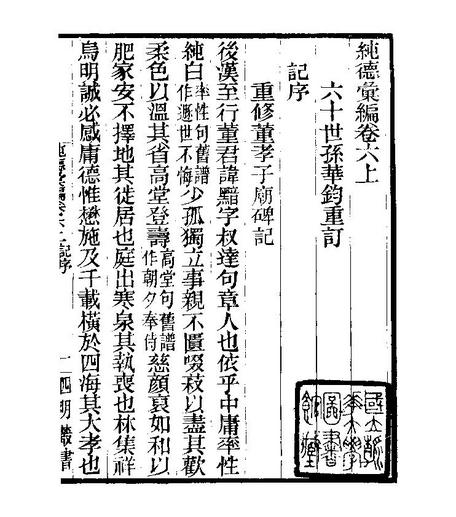 純德彙編卷六上
六十世孫華鈞重訂
記序
重修董孝子廟碑記
後漢至行董君諱黯字叔達句章人也依乎中庸率性
純白率性句舊譜作遯世不悔少孤獨立事親不匱啜菽以盡其歡
柔色以溫其省高堂登壽高堂句舊譜作朝夕奉侍慈顏哀如和以
肥家安不擇地其徙居也庭出寒泉其執喪也林集祥
烏明誠必感庸德惟懋施及千載橫於四海其大孝也
記序
一
四明叢書